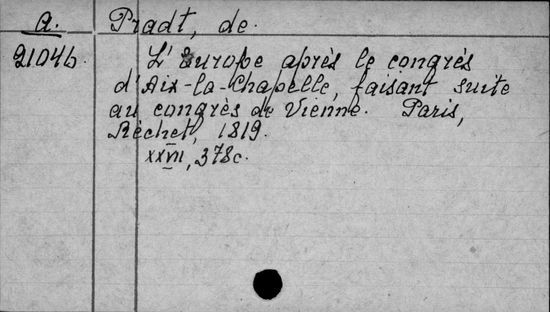 a. Pradt, de.
21046. L'Europe après le congrès
d'Aix-la-Chapelle, faisant suite
au congrès de Vienne. Paris,
Béchet, 1819.
XXVI, 378c.